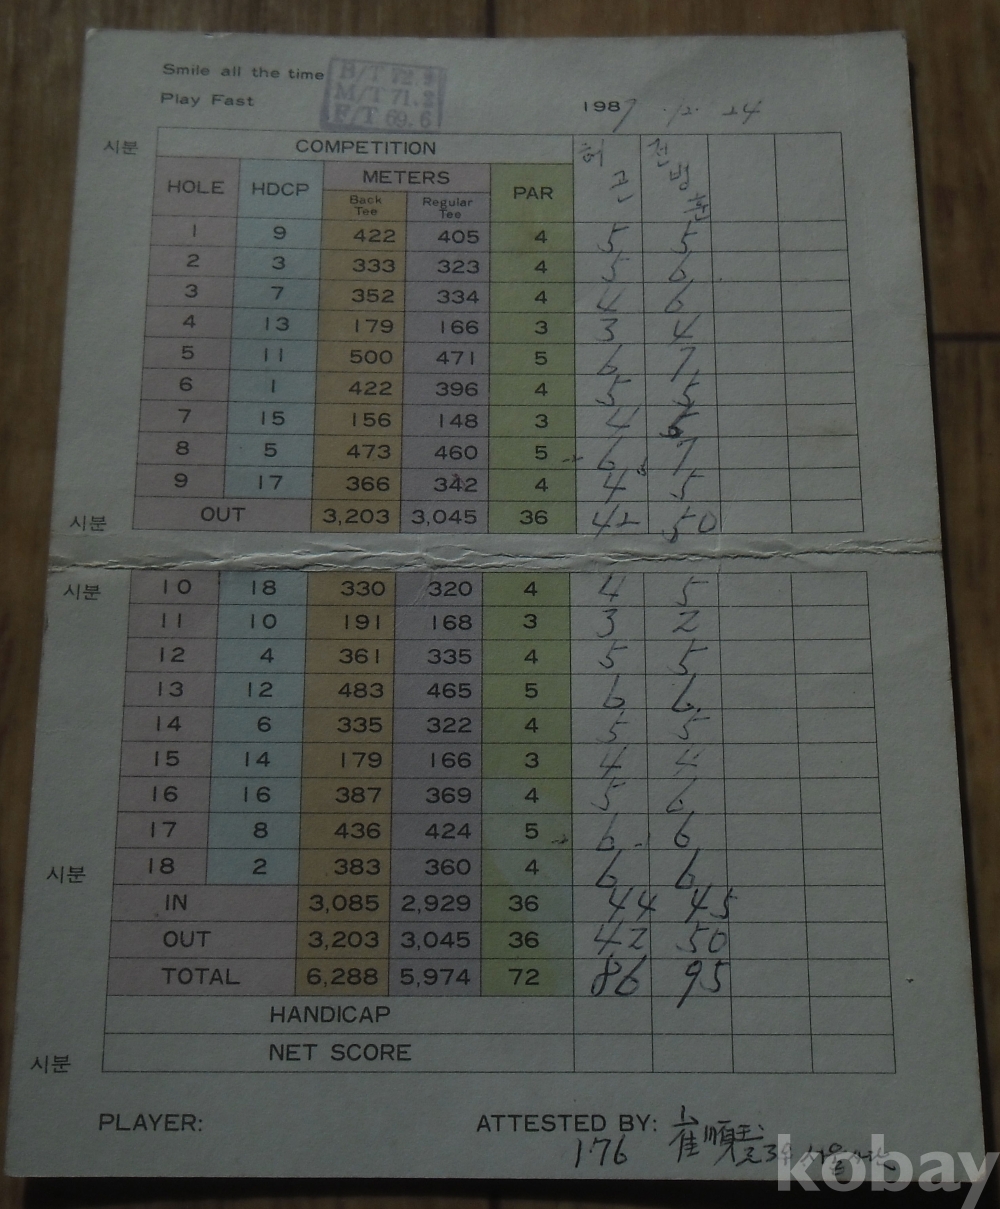 Smile all the time
B/T 72.9
Play Fast
M/T 71.2
F/T 69.6
1987 12 24
시분 COMPETITION 허 전
HOLE HDCP METERS PAR 관 병
Back Tee Regular Tee
1 9 422 405 4 5 5
2 3 333 323 4 5 6
3 7 352 334 4 4 6
4 13 179 166 3 3 4
5 11 500 471 5 6 7
6 1 422 396 4 5 5
7 15 156 148 3 4
8 5 473 460 5 6 7
9 17 366 342 4 4 5
시분 OUT 3,203 3,045 36 42 50
시분 10 18 330 320 4 4 5
11 10 191 168 3 3 2
12 4 361 335 4 5 5
13 12 483 465 5 6 6
14 6 335 322 4 5 5
15 14 179 166 3 4 4
16 16 387 369 4 5 6
17 8 436 424 5 6 6
시분 18 2 383 360 4 6 6
IN 3,085 2,929 36 44 45
OUT 3,203 3,045 36 42 50
TOTAL 6,288 5,974 72 86 95
HANDICAP
시분 NET SCORE
PLAYER: ATTESTED BY: 崔順
176
kobay